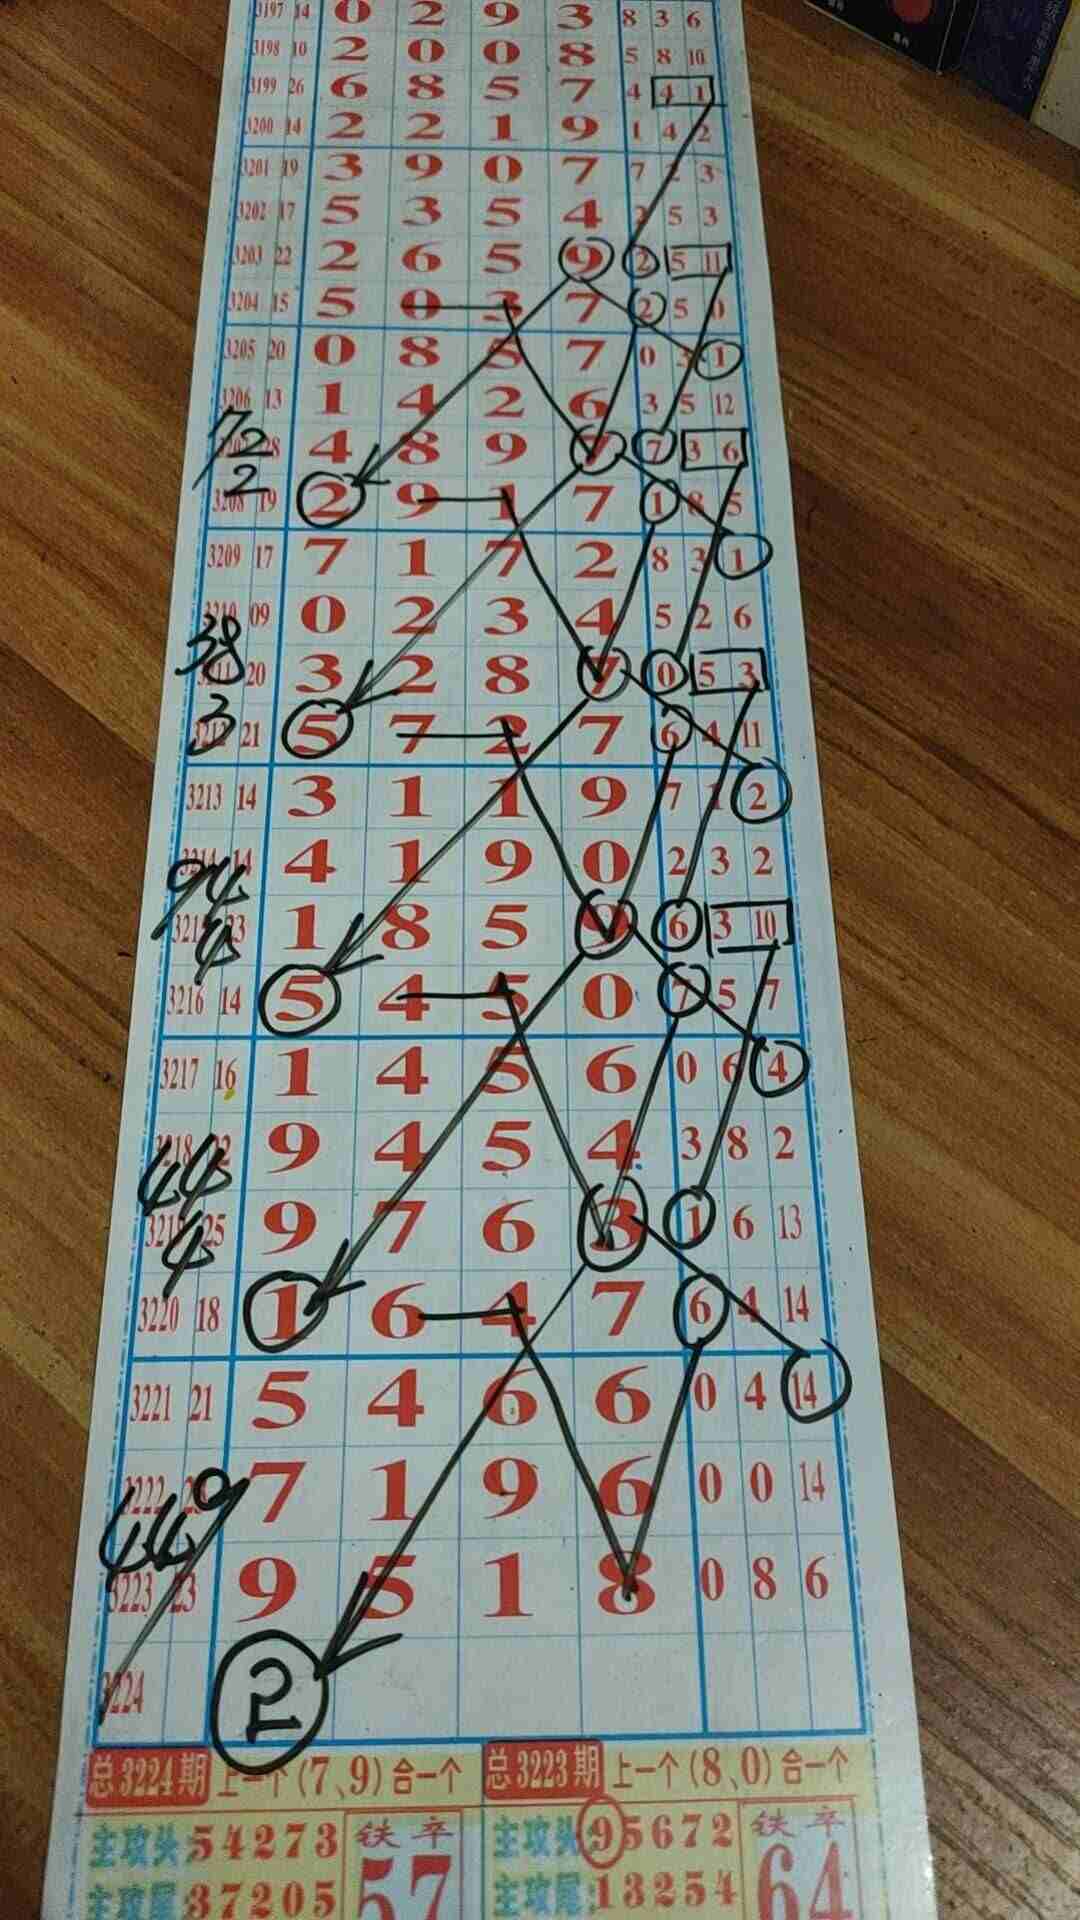 3197 14 0 2 9 3 8 3 6
3198 10 2 0 0 8 5 8 10
3199 26 6 8 5 7 4 4 1
3200 14 2 2 1 9 1 4 2
3201 19 3 9 0 7 7 2 3
3202 17 5 3 5 4 2 5 3
3203 22 2 6 5 9 2 5 11
3204 15 5 0 3 7 2 5 0
3205 20 0 8 5 7 0 3 1
3206 13 1 4 2 6 3 5 12
72
28 4 8 9 7 7 3 6
2
3208 19 2 9 1 7 1 8 5
3209 17 7 1 7 2 8 3 1
3210 09 0 2 3 4 5 2 6
38
3211 20 3 2 8 7 0 5 3
3
3212 21 5 7 2 7 6 4 11
3213 14 3 1 1 9 7 1 2
3214 14 4 1 9 0 2 3 2
94
3215 23 1 8 5 9 6 3 10
4
3216 14 5 4 5 0 7 5 7
3217 16 1 4 5 6 0 6 4
3218 22 9 4 5 4 3 8 2
44
3219 25 9 7 6 3 1 6 13
4
3220 18 1 6 4 7 6 4 14
3221 21 5 4 6 6 0 4 14
3222 23 7 1 9 6 0 0 14
449
3223 23 9 5 1 8 0 8 6
3224
总3224期 上一个(7、9)合一个 总3223期 上一个(8、0)合一个
主攻头:54273 铁卒 主攻头:95672 铁卒
主攻尾:37205 57 主攻尾:13254 64